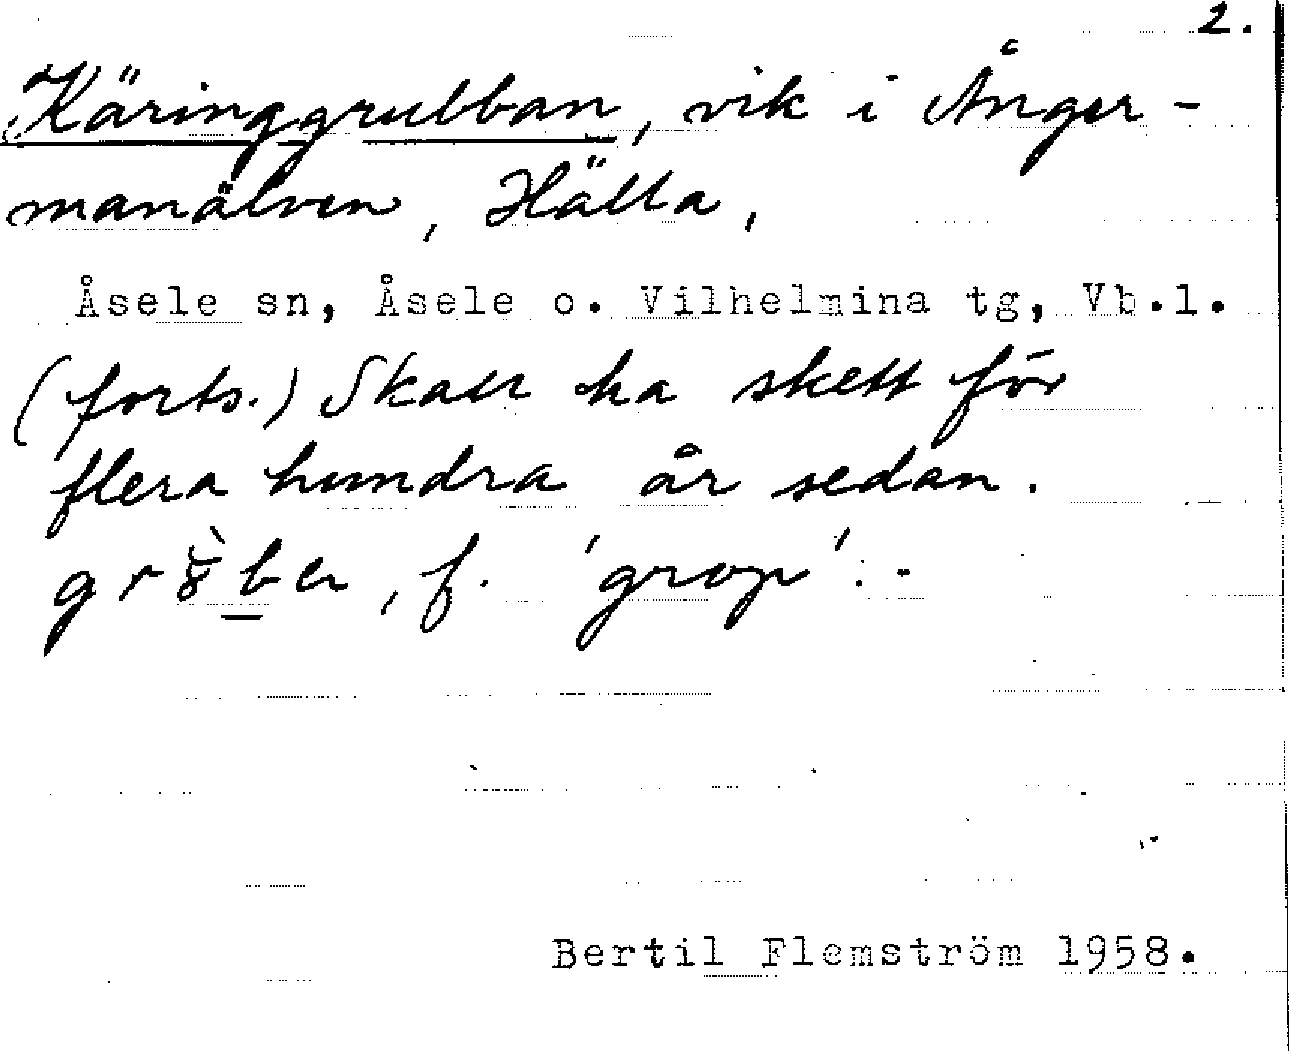 2.
Käringgrubban, vik i Ånger-
manälven, Hälla,
Åsele sn, Åsele o. Vilhelmina tg, Vb.l.
(forts.) Skall ha skett för
flera hundra år sedan.
, f. 'grop'.-
Bertil Flemström 1958.